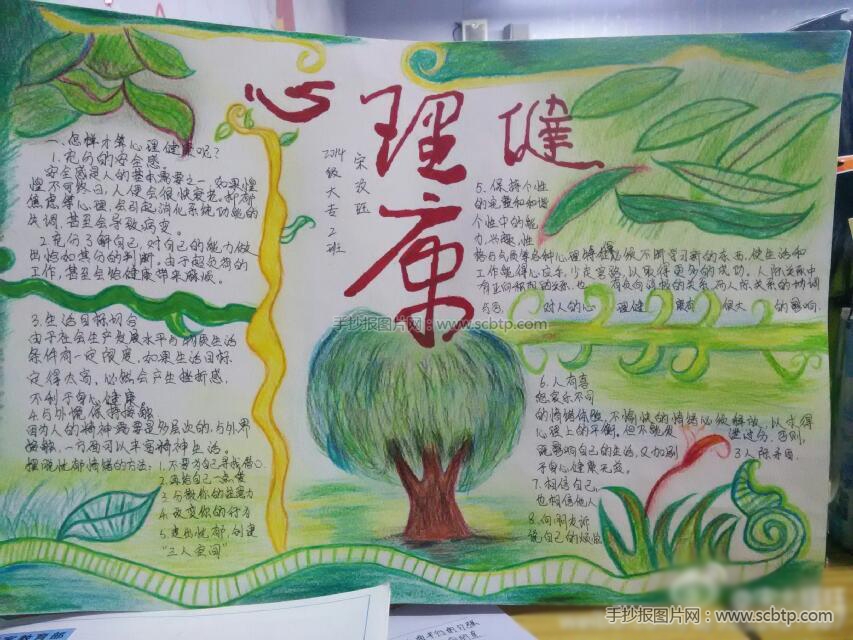 心理健康
2014级大专2班
一、怎样才算心理健康呢?
1. 充份的安全感。
安全感是人的基本需要之一,如果惶
惶不可终日,人便会很快衰老。抑郁
焦虑等心理,会引起消化系统功能的
失调,甚至会导致病变。
2. 充份了解自己,对自己的能力做
出恰如其份的判断。由于超负荷的
工作,甚至会给健康带来麻烦。
3. 生活目标切合
由于社会生产发展水平与物质生活
条件有一定限度,如果生活目标
定得太高,必然会产生挫折感,
不利于身心健康
4. 与外境保持接触
因为人的精神需要是多层次的,与外界
接触,一方面可以丰富精神生活。
摆脱忧郁情绪的方法:1. 不要为自己寻找借口
2. 再给自己一点爱
3. 与散你的注意力
4. 改变你的行为
5. 走出忧郁,创建
“三人空间”
5. 保持个性
的完整和和谐
个性中的能
力、兴趣、性
格与气质等各种心理特征必须不断学习新的东西,使生活和
工作能得心应手,少走弯路,以取得更多的成功。人际关系中
有正向积极的关系,也有负向消极的关系,而人际关系的协调
与否 对人的心理健康有很大的影响
6. 人有喜
怒哀乐不同
的情绪体验,不愉快的情绪必须释放,以求得
心理上的平衡。但不能发泄过分,否则,
既影响自己的生活,又加剧了人际矛盾,
于身心健康无益。
7. 相信自己,
也相信他人
8. 向朋友诉
说自己的烦恼
手抄报图片网:www.scbtp.com
手抄报图片网:www.scbtp.com
教育部